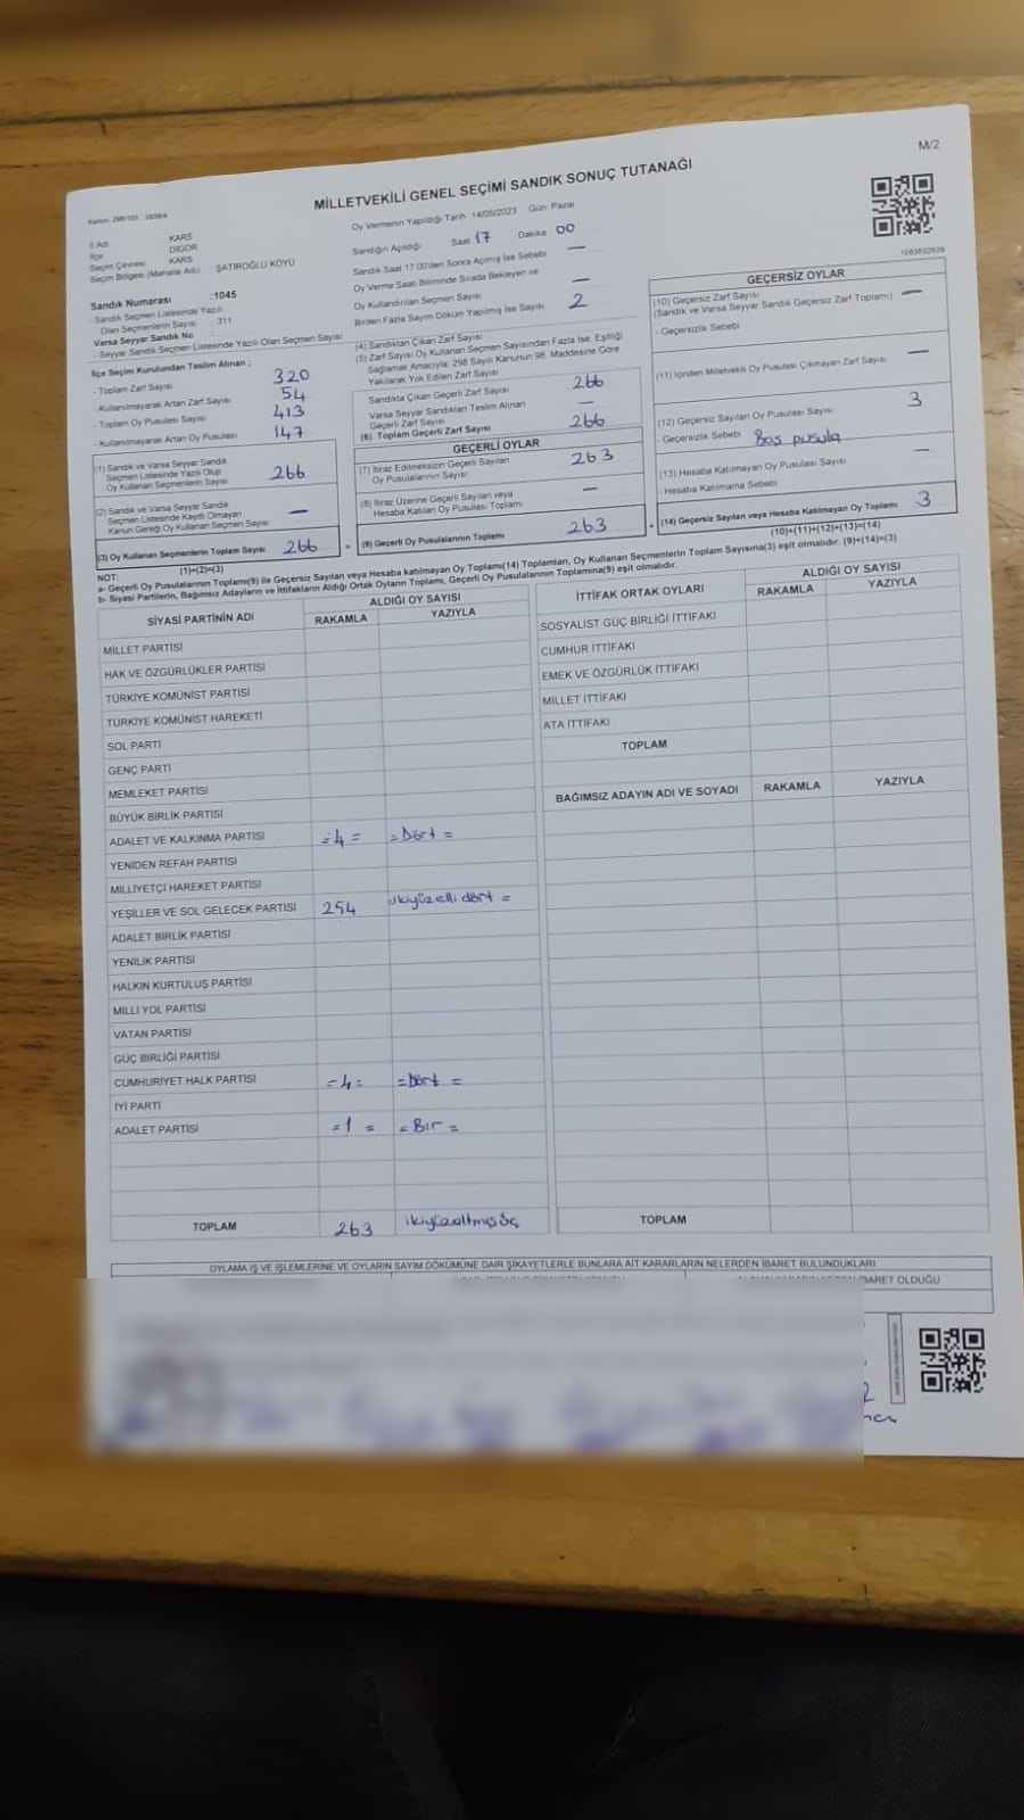 M/2
MİLLETVEKİLİ GENEL SEÇİMİ SANDIK SONUÇ TUTANAĞI
İl Adı KARS
İlçe DİGOR
Seçim Çevresi KARS
Seçim Bölgesi (Mahalle Adı) ŞATIROĞLU KÖYÜ
Sandık Numarası :1045
- Sandık Seçmen Listesinde Yazılı
Olan Seçmenlerin Sayısı : 311
Varsa Seyyar Sandık No
- Seyyar Sandık Seçmen Listesinde Yazılı Olan Seçmen Sayısı
İlçe Seçim Kurulundan Teslim Alınan :
- Toplam Zarf Sayısı 320
- Kullanılmayarak Artan Zarf Sayısı 54
- Toplam Oy Pusulası Sayısı 413
- Kullanılmayarak Artan Oy Pusulası 147
(1) Sandık ve Varsa Seyyar Sandık
Seçmen Listesinde Yazılı Olup
Oy Kullanan Seçmenlerin Sayısı 266
(2) Sandık ve Varsa Seyyar Sandık
Seçmen Listesinde Kayıtlı Olmayan
Kanun Gereği Oy Kullanan Seçmen Sayısı —
(3) Oy Kullanan Seçmenlerin Toplam Sayısı 266
(1)+(2)=(3)
Oy Vermenin Yapıldığı Tarih 14/05/2023 Gün: Pazar
Sandığın Açıldığı Saat 17 Dakika 00
Sandık Saat 17:00'den Sonra Açılmış İse Sebebi —
Oy Verme Saati Bitiminde Sırada Bekleyen ve
Oy Kullandırılan Seçmen Sayısı —
Birden Fazla Sayım Döküm Yapılmış İse Sayısı 2
(4) Sandıktan Çıkan Zarf Sayısı
(5) Zarf Sayısı Oy Kullanan Seçmen Sayısından Fazla İse, Eşitliği
Sağlamak Amacıyla, 298 Sayılı Kanunun 98. Maddesine Göre
Yakılarak Yok Edilen Zarf Sayısı
Sandıkta Çıkan Geçerli Zarf Sayısı 266
Varsa Seyyar Sandıktan Teslim Alınan
Geçerli Zarf Sayısı —
(6) Toplam Geçerli Zarf Sayısı 266
GEÇERLİ OYLAR
(7) İtiraz Edilmeksizin Geçerli Sayılan
Oy Pusulalarının Sayısı 263
(8) İtiraz Üzerine Geçerli Sayılan veya
Hesaba Katılan Oy Pusulası Toplamı —
(9) Geçerli Oy Pusulalarının Toplamı 263
GEÇERSİZ OYLAR
(10) Geçersiz Zarf Sayısı
(Sandık ve Varsa Seyyar Sandık Geçersiz Zarf Toplamı) —
- Geçersizlik Sebebi
(11) İçinden Milletvekili Oy Pusulası Çıkmayan Zarf Sayısı —
(12) Geçersiz Sayılan Oy Pusulası Sayısı 3
- Geçersizlik Sebebi Boş pusula
(13) Hesaba Katılmayan Oy Pusulası Sayısı —
- Hesaba Katılmama Sebebi
(14) Geçersiz Sayılan veya Hesaba Katılmayan Oy Toplamı 3
(10)+(11)+(12)+(13)=(14)
NOT:
a- Geçerli Oy Pusulalarının Toplamı(9) ile Geçersiz Sayılan veya Hesaba katılmayan Oy Toplamı(14) Toplamları, Oy Kullanan Seçmenlerin Toplam Sayısına(3) eşit olmalıdır. (9)+(14)=(3)
b- Siyasi Partilerin, Bağımsız Adayların ve İttifakların Aldığı Ortak Oyların Toplamı, Geçerli Oy Pusulalarının Toplamına(9) eşit olmalıdır.
SİYASİ PARTİNİN ADI ALDIĞI OY SAYISI
RAKAMLA YAZIYLA
MİLLET PARTİSİ
HAK VE ÖZGÜRLÜKLER PARTİSİ
TÜRKİYE KOMÜNİST PARTİSİ
TÜRKİYE KOMÜNİST HAREKETİ
SOL PARTİ
GENÇ PARTİ
MEMLEKET PARTİSİ
BÜYÜK BİRLİK PARTİSİ
ADALET VE KALKINMA PARTİSİ =4= =Dört=
YENİDEN REFAH PARTİSİ
MİLLİYETÇİ HAREKET PARTİSİ
YEŞİLLER VE SOL GELECEK PARTİSİ 254 ikiyüzellidört =
ADALET BİRLİK PARTİSİ
YENİLİK PARTİSİ
HALKIN KURTULUŞ PARTİSİ
MİLLİ YOL PARTİSİ
VATAN PARTİSİ
GÜÇ BİRLİĞİ PARTİSİ
CUMHURİYET HALK PARTİSİ =4= =Dört=
İYİ PARTİ
ADALET PARTİSİ =1= =Bir=
TOPLAM 263 ikiyüzaltmışüç
İTTİFAK ORTAK OYLARI ALDIĞI OY SAYISI
RAKAMLA YAZIYLA
SOSYALİST GÜÇ BİRLİĞİ İTTİFAKI
CUMHUR İTTİFAKI
EMEK VE ÖZGÜRLÜK İTTİFAKI
MİLLET İTTİFAKI
ATA İTTİFAKI
TOPLAM
BAĞIMSIZ ADAYIN ADI VE SOYADI RAKAMLA YAZIYLA
TOPLAM
OYLAMA İŞ VE İŞLEMLERİNE VE OYLARIN SAYIM DÖKÜMÜNE DAİR ŞİKAYETLERLE BUNLARA AİT KARARLARIN NELERDEN İBARET BULUNDUKLARI
İBARET OLDUĞU